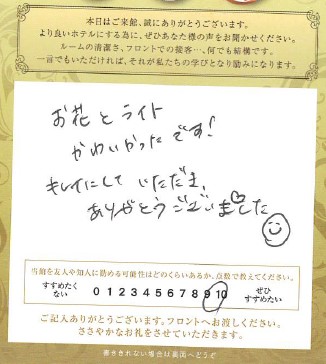 本日はご来館、誠にありがとうございます。
より良いホテルにする為に、ぜひあなた様の声をお聞かせください。
ルームの清潔さ、フロントでの接客…、何でも結構です。
一言でもいただければ、それが私たちの学びとなり励みになります。
お花とライト
かわいかったです!
キレイにして いただき、
ありがとうございました
当館を友人や知人に勧める可能性はどのくらいあるか、点数で教えてください。
すすめたくない 0 1 2 3 4 5 6 7 8 9 10 ぜひすすめたい
ご記入ありがとうございます。フロントへお渡しください。
ささやかなお礼をさせていただきます。
書ききれない場合は裏面へどうぞ